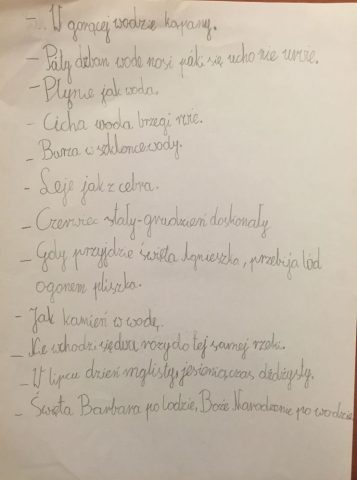 - W gorącej wodzie kąpany.
- Póty dzban wodę nosi póki się ucho nie urwie.
- Płynie jak woda.
- Cicha woda brzegi rwie.
- Burza w szklance wody.
- Leje jak z cebra.
- Czerwiec stały-grudzień doskonały
- Gdy przyjdzie święta Agnieszka, przebija lód
ogonem pliszka.
- Jak kamień w wodę.
- Nie wchodzi się dwa razy do tej samej rzeki.
- W lipcu dzień mglisty, jesienią czas dżdżysty.
- Święta Barbara po lodzie, Boże Narodzenie po wodzie